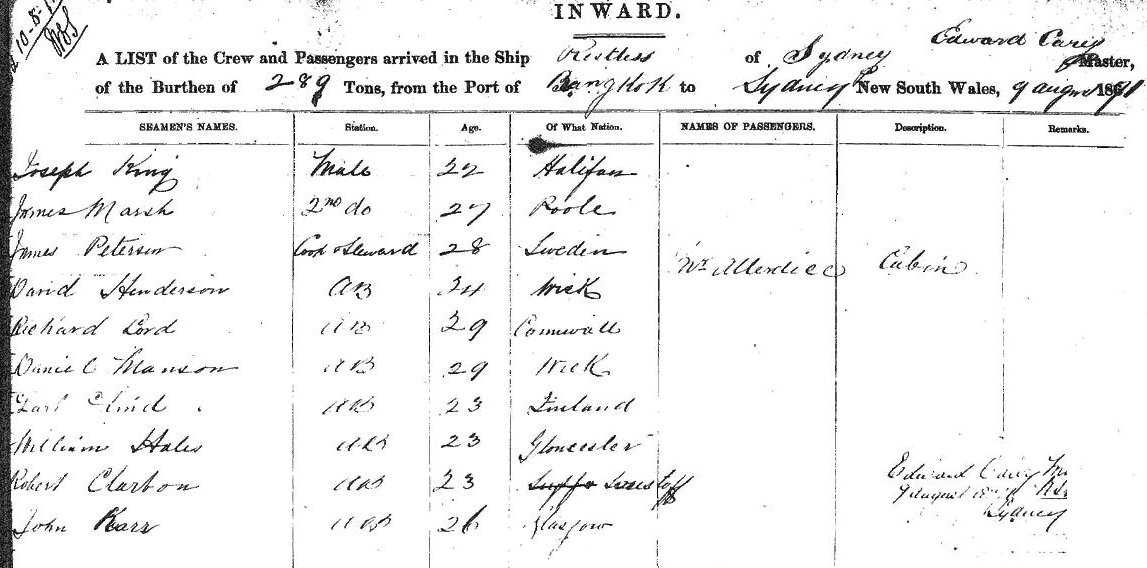 10-8-
INWARD.
A LIST of the Crew and Passengers arrived in the Ship Restless of Sydney Edward Carey Master,
of the Burthen of 289 Tons, from the Port of Bangkok to Sydney New South Wales, 9 august 1871
SEAMEN'S NAMES. Station. Age. Of What Nation. NAMES OF PASSENGERS. Description. Remarks.
Joseph King Mate 22 Halifax
James Marsh 2nd do 27 Poole
James Peterson Cook & Steward 28 Sweden
Mr Allerdice Cabin
David Henderson AB 34 Wick
Richard Lord AB 29 Cornwall
Daniel Manson AB 29 Wick
AB 23 Finland
William Hales AB 23 Gloucester
Robert Clarbon AB 23
Edward Carey
9 August
Sydney
John Karr AB 26 Glasgow